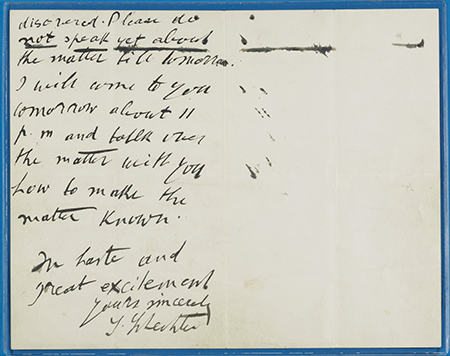 discvered. Please do
not speak yet about
the matter till tomorrow.
I will come to you
tomorrow about 11
p. m and talk over
the matter with you
how to make the
matter known.
In haste and
great excitement
Yours sincerely
S. Schechter